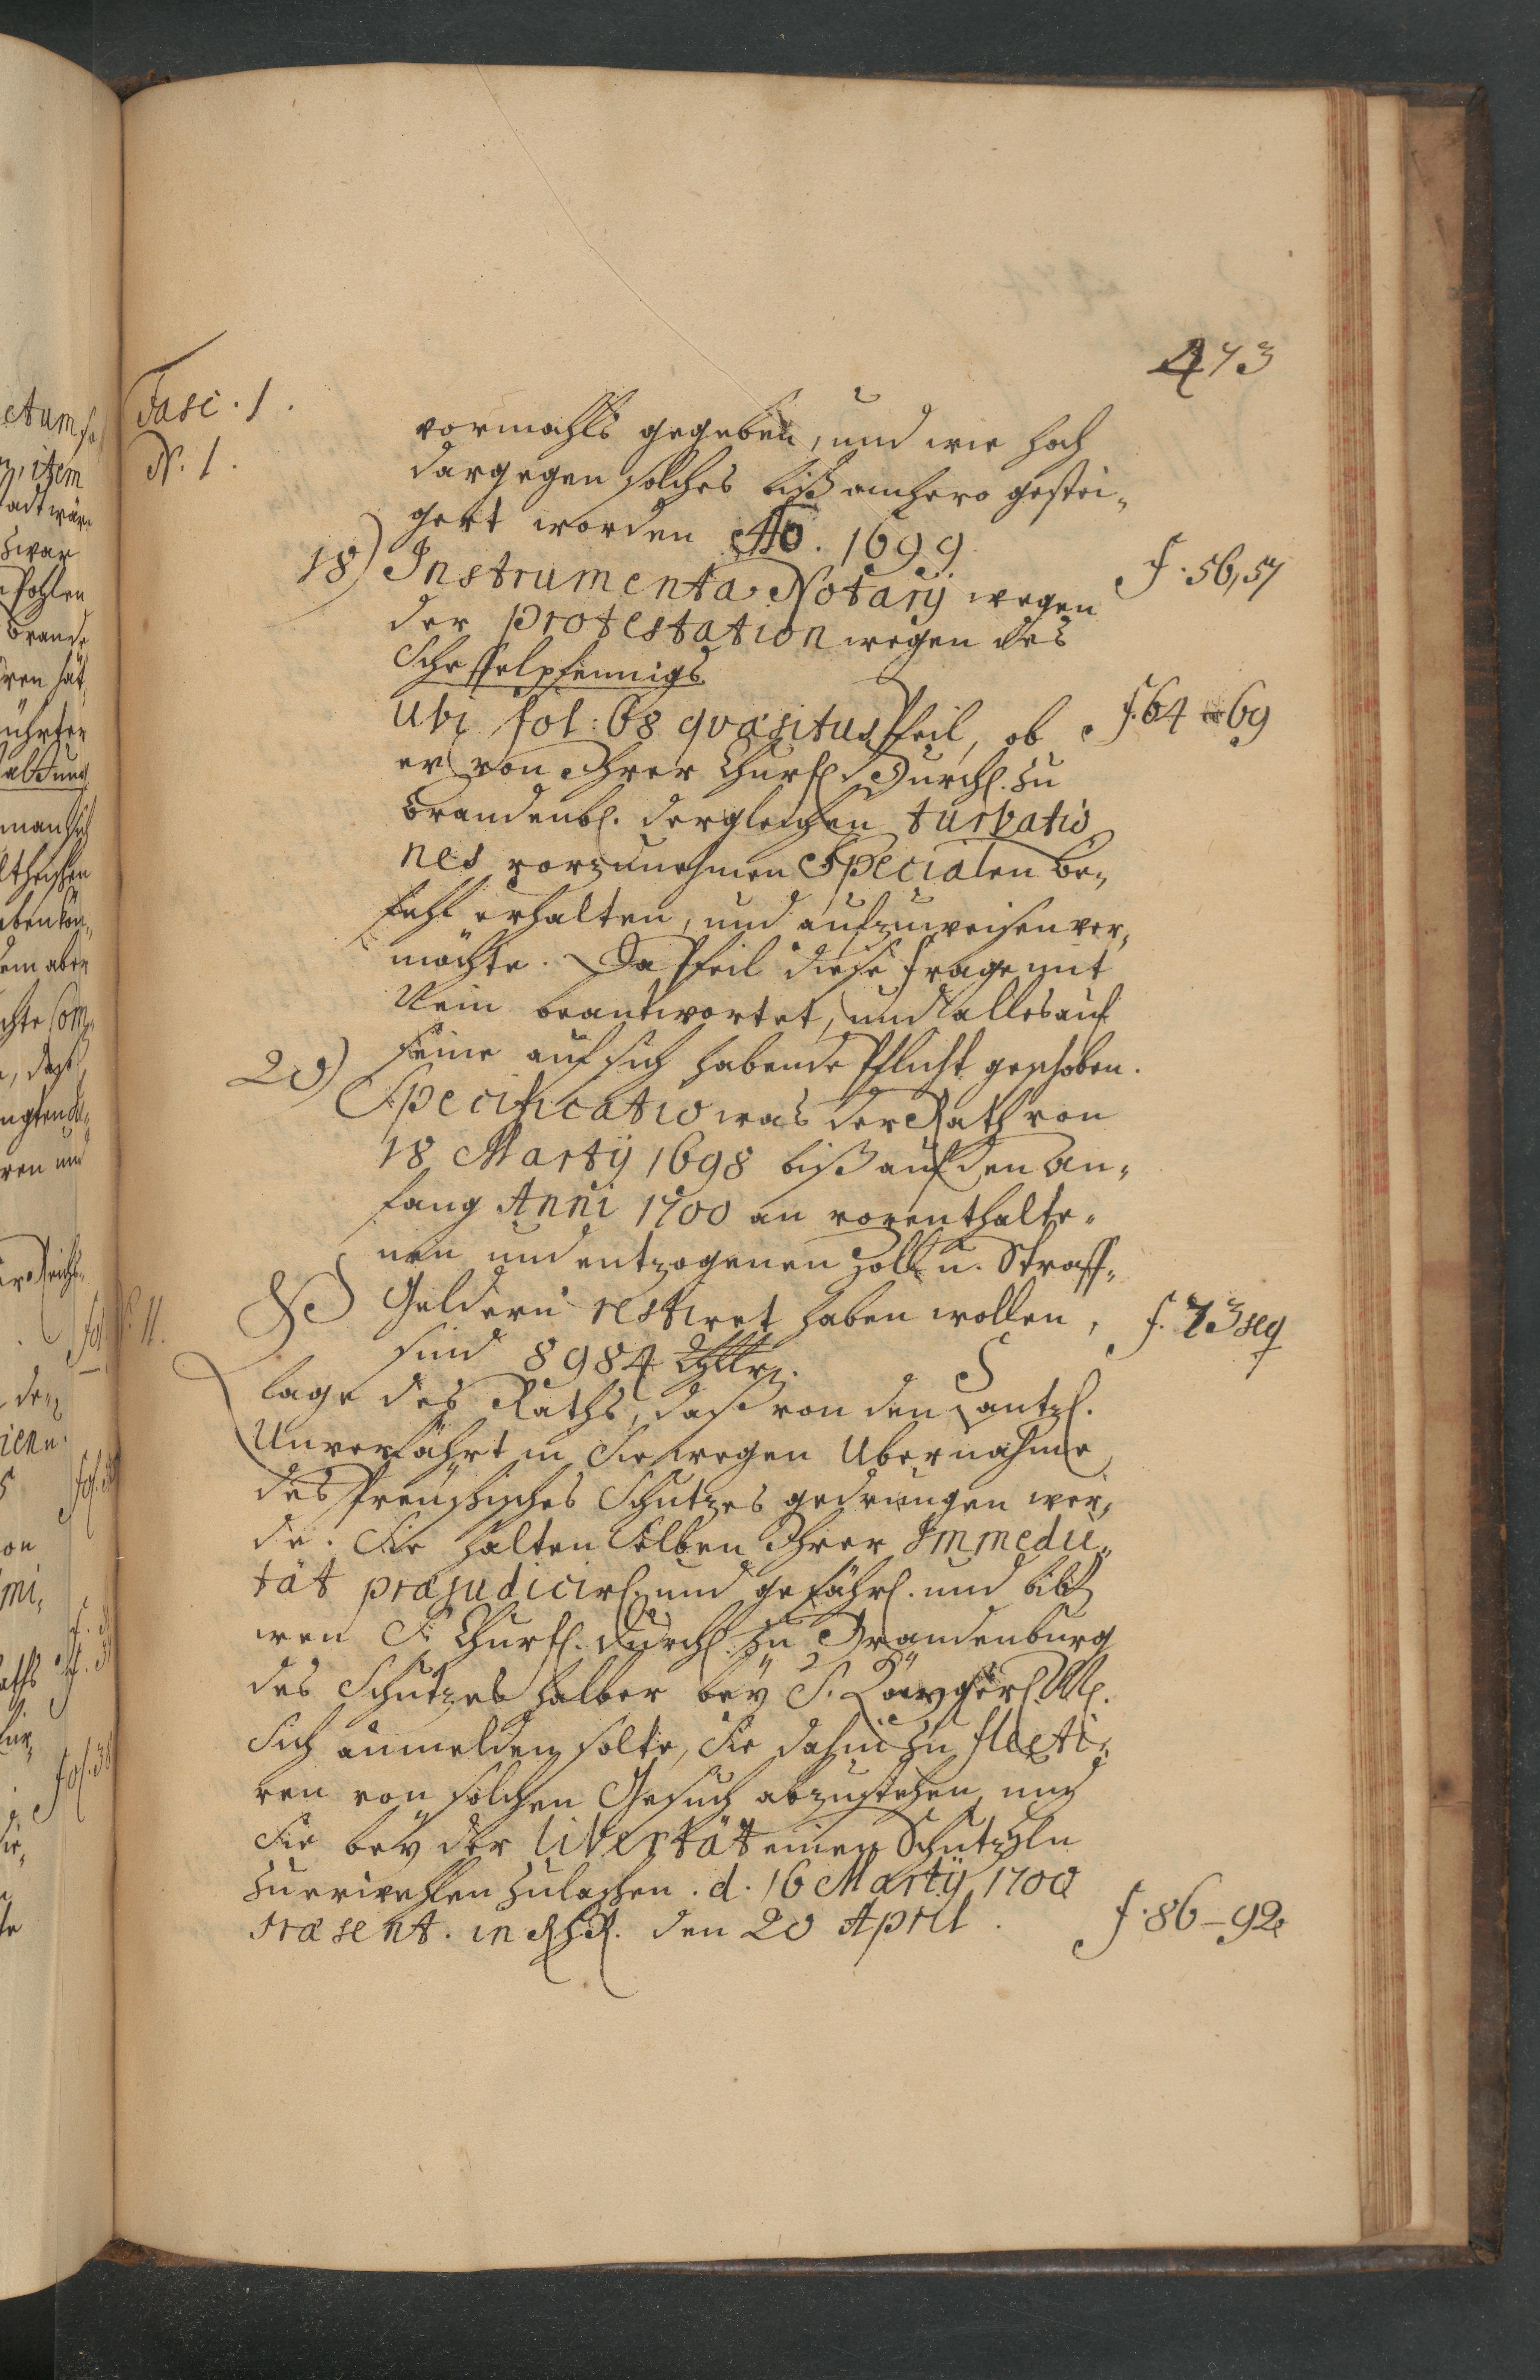 473
Fasc. 1.
N. 1.
vormahls gegeben, und wie hoch
dargegen solches biß anhero gestei-
gert worden Ao. 1699.
18) Instrumenta Notarÿ wegen f. 56, 57
der protestation wegen des
Scheffelpfennigs
Ubi fol: 68 quæsitus Pfeil, ob f. 64 69
er von Ihrer Churfl. Durchl. zu
Brandenbl. dergleichen turbatio
nes vorzunehmen Specialen Be-
fehl erhalten, und aufzuweisen ver-
möchte. Da Pfeil diese frage mit
Nein beantwortet, und alles auf
seine auf sich habende Pflicht geschoben.
20) Specificatio was der Rath von
18 Martÿ 1698 biß auf den An-
fang Anni 1700 an vorenthalte-
nen und entzogenen Zoll u. Straff-
Geldern restiret haben wollen, f. 73 seq
sind 8984
N. 11.
lage des Raths, daß von den Cantzl.
Unverfährt in Sie wegen Ubernahme
des Preußisches Schutzes gedrungen wer-
de. Sie halten selben Ihrer Immedie-
tät præjudicirl. und gefährl. und
wen S. Churfl. Durchl. zu Brandenburg
des Schutzes halber beÿ S. Kaÿserl. M.
sich anmelden solte, Sie dahin zu flecti-
ren von solchen Gesuch abzustehen, und
Sie beÿ der libertät einen Schutzhln
zuerwehlen zulaßen. d. 16 Martÿ 1700
Præsent. in RHR. den 20 April. f. 86-92.